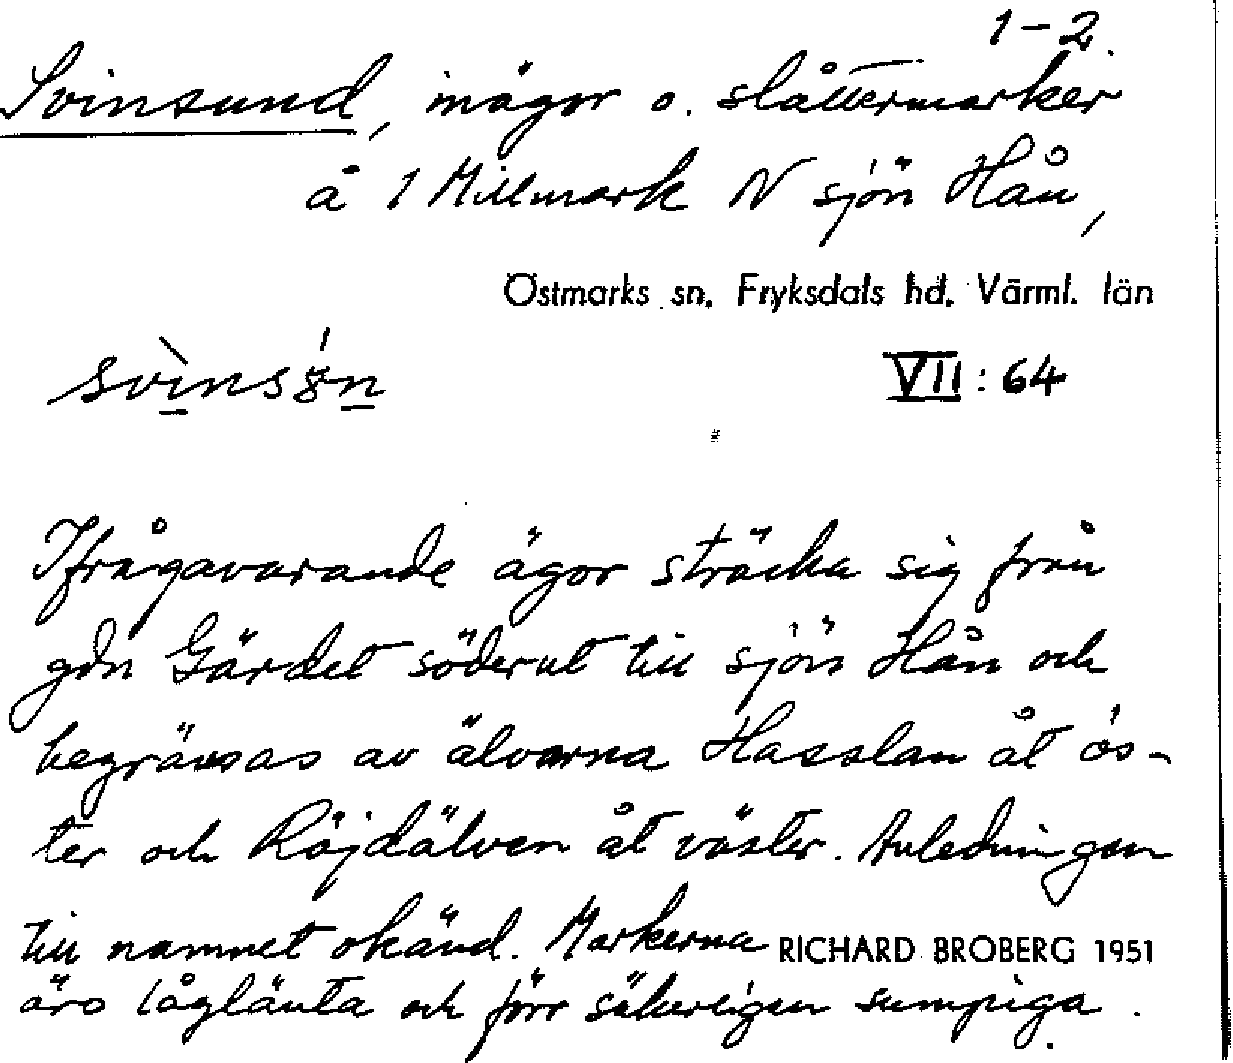 1-2.
Svinsund, inägor o. slåttermarker
å 1 Millmark N sjön Hån,
Östmarks sn. Fryksdals hd. Värml. län
svìnsún
VII: 64
Ifrågavarande ägor sträcka sig från
gdn Gärdet söderut till sjön Hån och
begränsas av älvarna Hasslan åt ös-
ter och Röjdälven åt väster. Anledningen
till namnet okänd. Markerna
RICHARD BROBERG 1951
äro låglänta och förr säkerligen sumpiga.